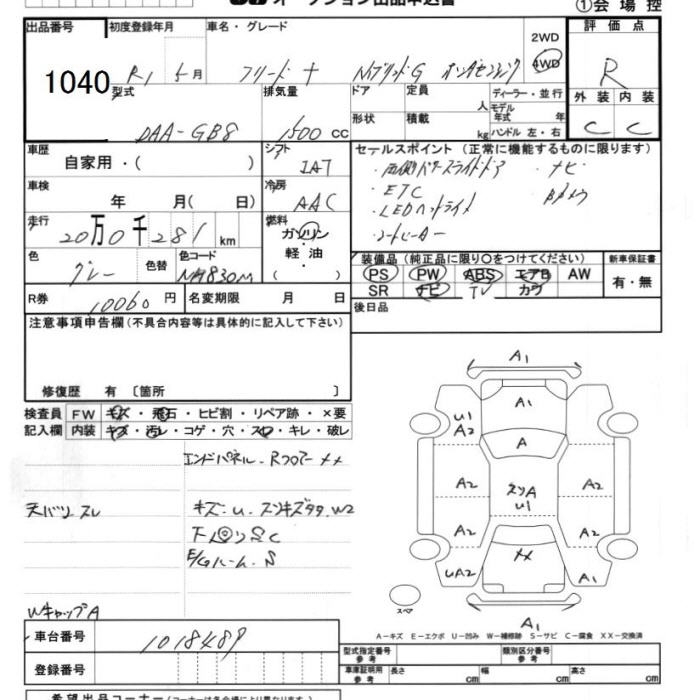 オークション出品申込書
①会場控
出品番号
1040
初度登録年月
R1 5月
車名・グレード
フリード+ ハイブリッドG ホンダセンシング
2WD
4WD
評価点
R
型式
DAA-GB8
排気量
1500 cc
ドア
形状
定員 人
積載 kg
ディーラー・並行
モデル年式 年
ハンドル 左・右
外装 内装
C C
車歴
自家用・( )
シフト
IAT
セールスポイント(正常に機能するものに限ります)
・両側パワースライドドア ・ナビ
・ETC ・Bカメラ
・LEDヘッドライト
・シートヒーター
車検
年 月( 日)
冷房
AAC
走行
20万0千281km
燃料
ガソリン
軽・油
( )
色
グレー
色替
色コード
NH830M
装備品(純正品に限り○をつけてください)
PS PW ABS エアB AW
SR ナビ TV カワ
新車保証書
有・無
R券
10060円
名変期限 月 日
後日品
注意事項申告欄(不具合内容等は具体的に記入して下さい)
修復歴 有 〔箇所 〕
検査員記入欄
FW キズ・飛石・ヒビ割・リペア跡・×要
内装 キズ・汚レ・コゲ・穴・スレ・キレ・破レ
エンドパネル、Rフロアー メメ
天バリ スレ
キズ、U、スリキズ多々、W2
下回リSC
E/Gルーム、S
WキャップA
A1
A1
U1
A2
A
A2
A2
スリA
U1
A2
A2
メメ
UA2
A1
スペア
A1
A-キズ E-エクボ U-凹み W-補修跡 S-サビ C-腐食 XX-交換済
車台番号
1018489
登録番号
型式指定番号 参考
類別区分番号 参考
車庫証明用 参考 長さ cm 幅 cm 高さ cm
希望出品コーナー